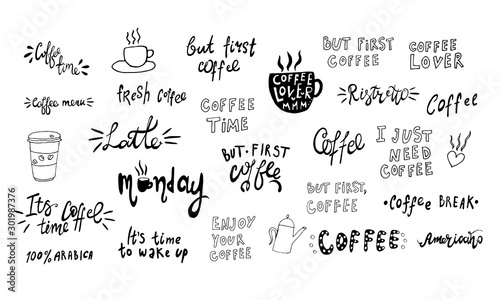 Coffee
time
but first
coffee
COFFEE
LOVER
MMM
BUT FIRST
COFFEE
COFFEE
LOVER
Coffee menu
fresh coffee
COFFEE
TIME
Ristretto
Coffee
Latte
BUT·FIRST
Coffee
Coffee
I JUST
NEED
COFFEE
Monday
BUT FIRST,
COFFEE
•Coffee BREAK•
It's Coffee
time
It's time
to wake up
ENJOY
YOUR
COFFEE
COFFEE
Americano
100% ARABICA
Adobe Stock | #301987376